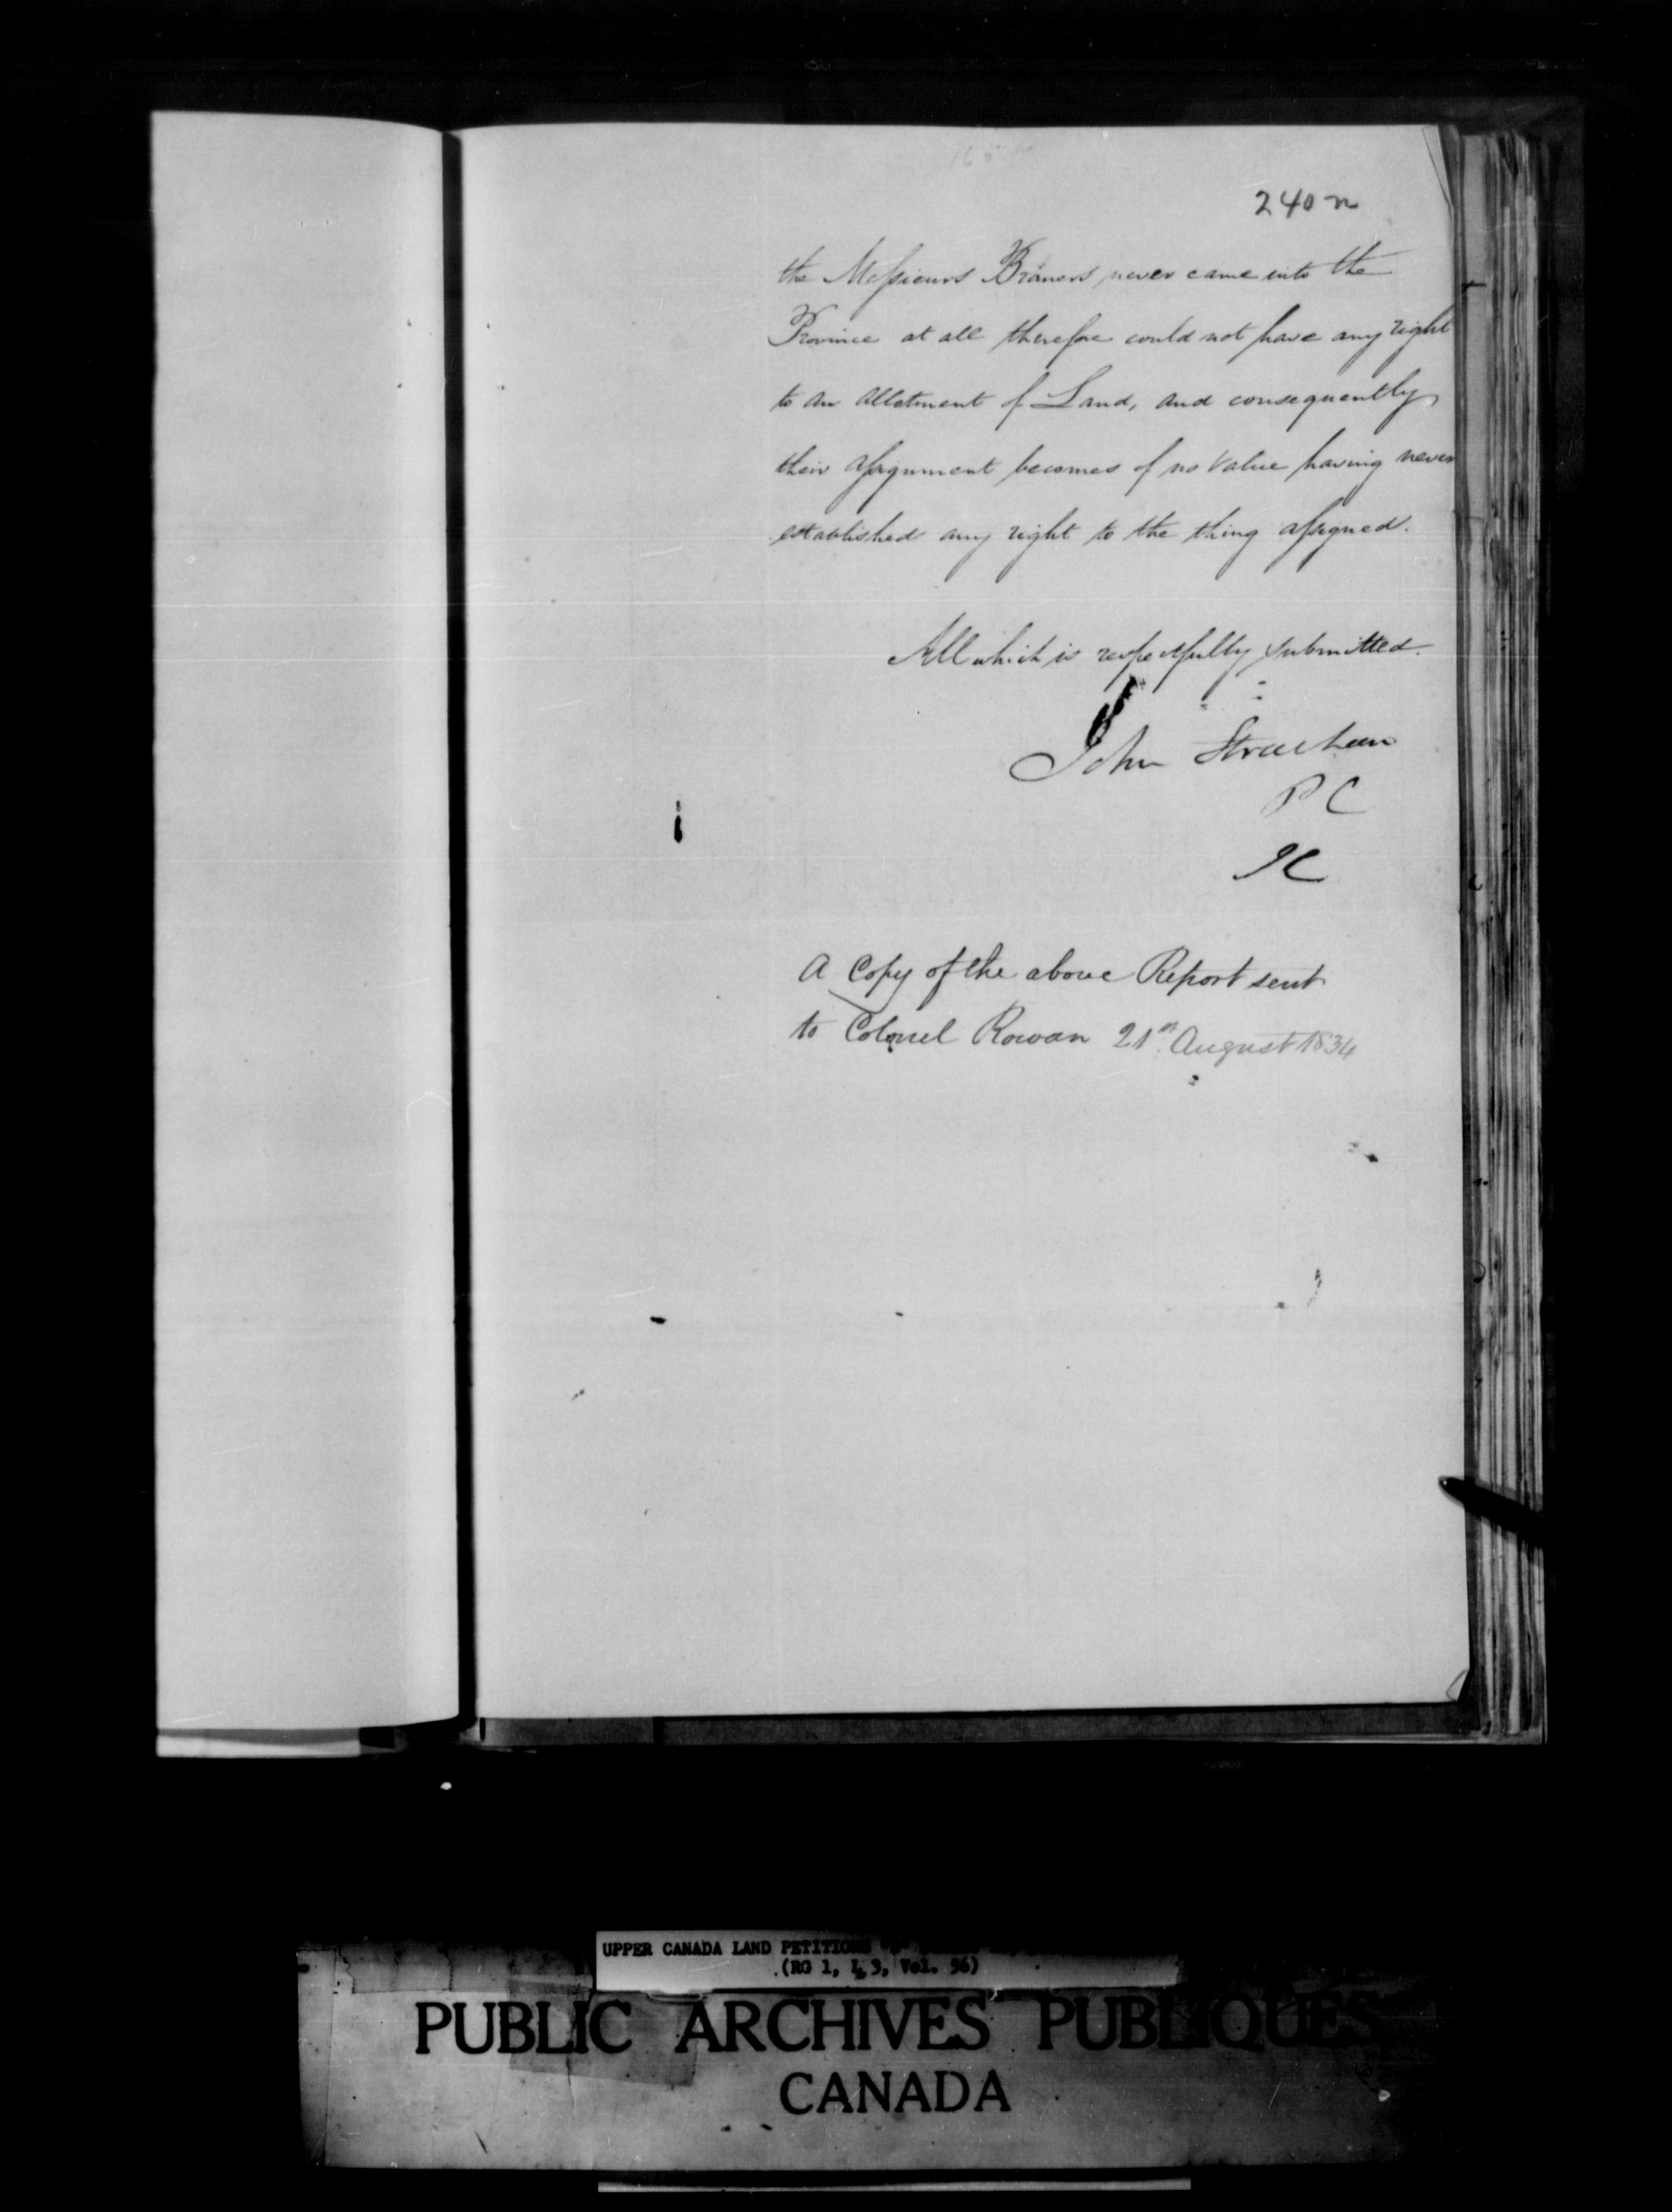 240 n
the Messieurs Braners never came into the
Province at all therefore could not have any right
to an allotment of Land, and consequently
their assignment becomes of no value having never
established any right to the thing assigned.
All which is respectfully submitted.
John Strachan
P C
A Copy of the above Report sent
to Colonel Rowan 21st August 1834
UPPER CANADA LAND PETITIONS
(RG 1, L 3, Vol. 56)
PUBLIC ARCHIVES PUBLIQUES
CANADA